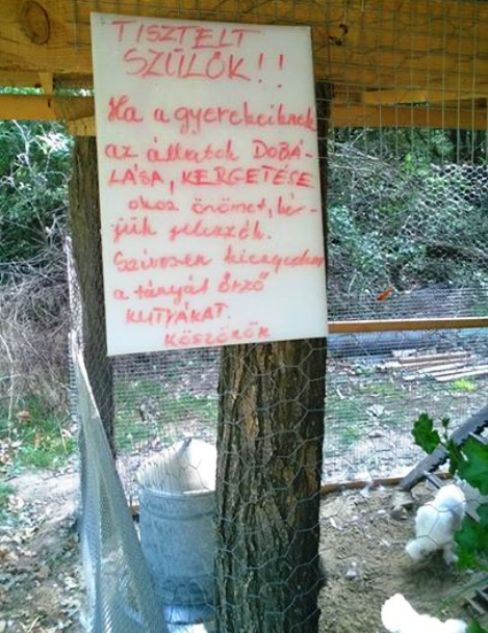 TISZTELT
SZÜLŐK!!
Ha a gyerekeiknek
az állatok DOBÁ-
LÁSA, KERGETÉSE
okoz örömet, kér-
jük jelezzék.
Szívesen kiengedem
a tányát őrző
KUTYÁKAT.
KÖSZÖNÖM